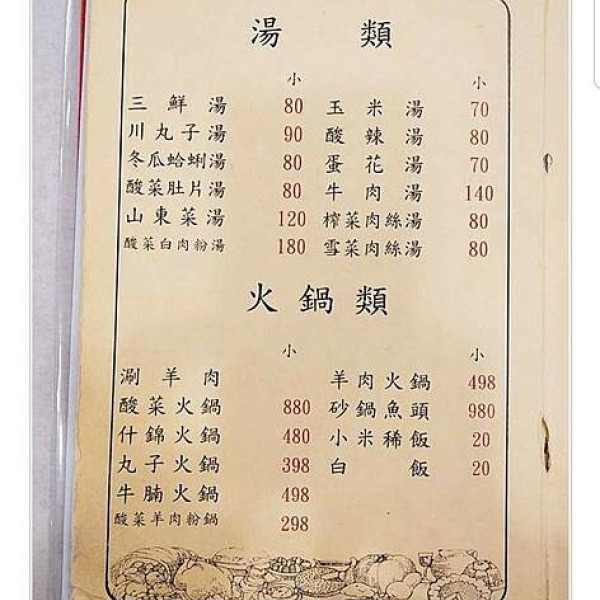 湯 類
小 小
三鮮湯 80 玉米湯 70
川丸子湯 90 酸辣湯 80
冬瓜蛤蜊湯 80 蛋花湯 70
酸菜肚片湯 80 牛肉湯 140
山東菜湯 120 榨菜肉絲湯 80
酸菜白肉粉湯 180 雪菜肉絲湯 80
火鍋類
小 小
涮羊肉 羊肉火鍋 498
酸菜火鍋 880 砂鍋魚頭 980
什錦火鍋 480 小米稀飯 20
丸子火鍋 398 白飯 20
牛腩火鍋 498
酸菜羊肉粉鍋 298